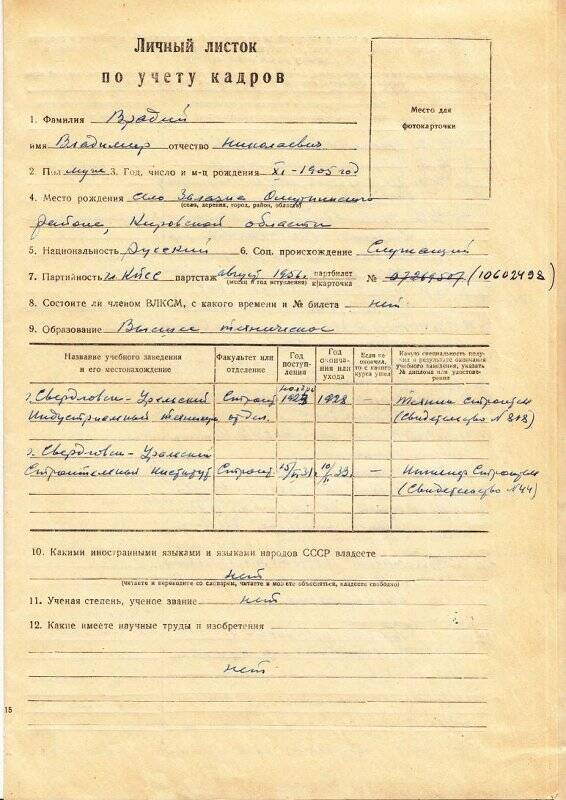 Личный листок
по учету кадров
Место для
фотокарточки
1. Фамилия Врадий
имя Владимир отчество Николаевич
2. Пол муж 3. Год, число и м-ц рождения XI-1905 год
4. Место рождения село Залазна Омутнинского
(село, деревня, город, район, область)
района, Кировской области
5. Национальность Русский 6. Соц. происхождение Служащий
7. Партийность чл КПСС партстаж август 1956г. партбилет
(месяц и год вступления) к/карточка № 07269507 (10602498)
8. Состоите ли членом ВЛКСМ, с какого времени и № билета нет
9. Образование Высшее техническое
Название учебного заведения и его местонахождение Факультет или отделение Год поступления Год окончания или ухода Если не окончил, то с какого курса ушел Какую специальность получил в результате окончания учебного заведения, указать № диплома или удостоверения
1. Свердловск - Уральский ноябрь
Индустриальный техникум Строит отдел. 192 1928 — Техник строитель
(Свидетельство № 818)
2. Свердловск - Уральский
Строительный институт Строит. 31 33 — Инженер Строитель
(Свидетельство №44)
10. Какими иностранными языками и языками народов СССР владеете
нет
(читаете и переводите со словарем, читаете и можете объясняться, владеете свободно)
11. Ученая степень, ученое звание нет
12. Какие имеете научные труды и изобретения
нет
15